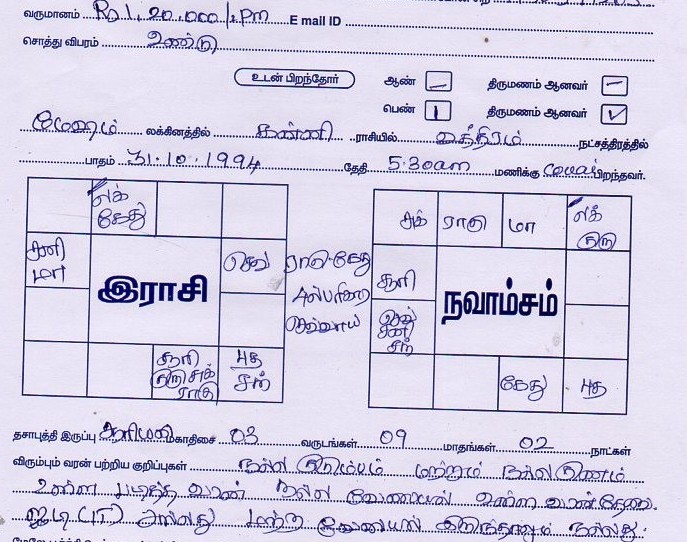 வருமானம் Rs 1,20,000/pm E mail ID
சொத்து விபரம் உண்டு
உடன் பிறந்தோர் ஆண் – திருமணம் ஆனவர் –
பெண் 1 திருமணம் ஆனவர் ✓
லக்கினத்தில் கன்னி ராசியில் நட்சத்திரத்தில்
பாதம் 31.10.1994 தேதி 5.30am மணிக்கு பிறந்தவர்.
லக் கேது
சனி மா
செவ்
இராசி
சூரி குரு சுக் ராகு
புத சந்
ராகு-கேது
செவ்வாய்
சுக் ராகு மா லக் குரு
சூரி
செவ் சனி சந்
நவாம்சம்
கேது புத
தசாபுத்தி இருப்பு சூரிய மகாதிசை 03 வருடங்கள் 09 மாதங்கள் 02 நாட்கள்
விரும்பும் வரன் பற்றிய குறிப்புகள் நல்ல குடும்பம் மற்றும் நல்ல குணம்
உள்ள படித்த வரன் நல்ல வேலையில் உள்ள வரன் தேவை.
ஐடி (IT) அல்லது மற்ற வேலையில் இருந்தாலும் நல்லது.